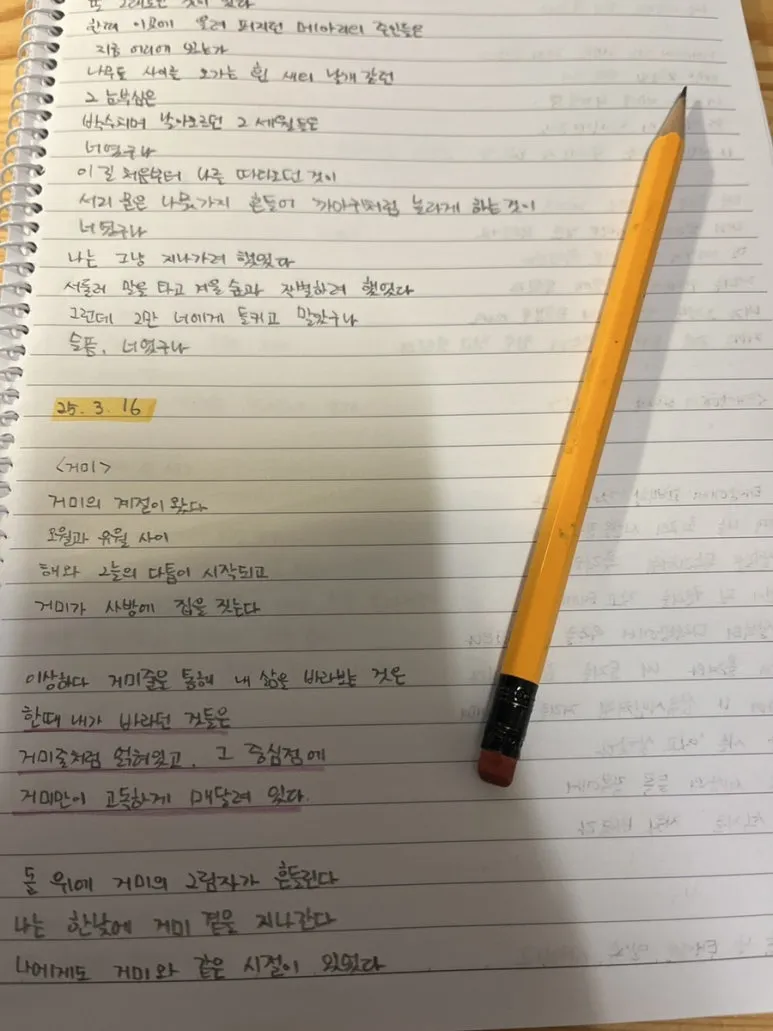 또 그대로인 것이 있다
한때 이곳에 울려 퍼지던 메아리의 주인들은
지금 어디에 있는가
나무들 사이를 오가는 흰 새의 날개 같던
그 눈부심은
박수치며 날아오르던 그 세월들은
너였구나
이 길 처음부터 나를 따라오던 것이
서리 묻은 나뭇가지 흔들어 까마귀처럼 놀라게 하는 것이
너였구나
나는 그냥 지나가려 했었다
서둘러 말을 타고 겨울 숲과 작별하려 했었다
그런데 그만 너에게 들키고 말았구나
슬픔, 너였구나
25. 3. 16
<거미>
거미의 계절이 왔다
오월과 유월 사이
해와 그늘의 다툼이 시작되고
거미가 사방에 집을 짓는다
이상하다 거미줄을 통해 내 삶을 바라보는 것은
한때 내가 바라던 것들은
거미줄처럼 얽혀있고, 그 중심점에
거미만이 고독하게 매달려 있다.
돌 위에 거미의 그림자가 흔들린다
나는 한낮에 거미 곁을 지나간다
나에게도 거미와 같은 시절이 있었다